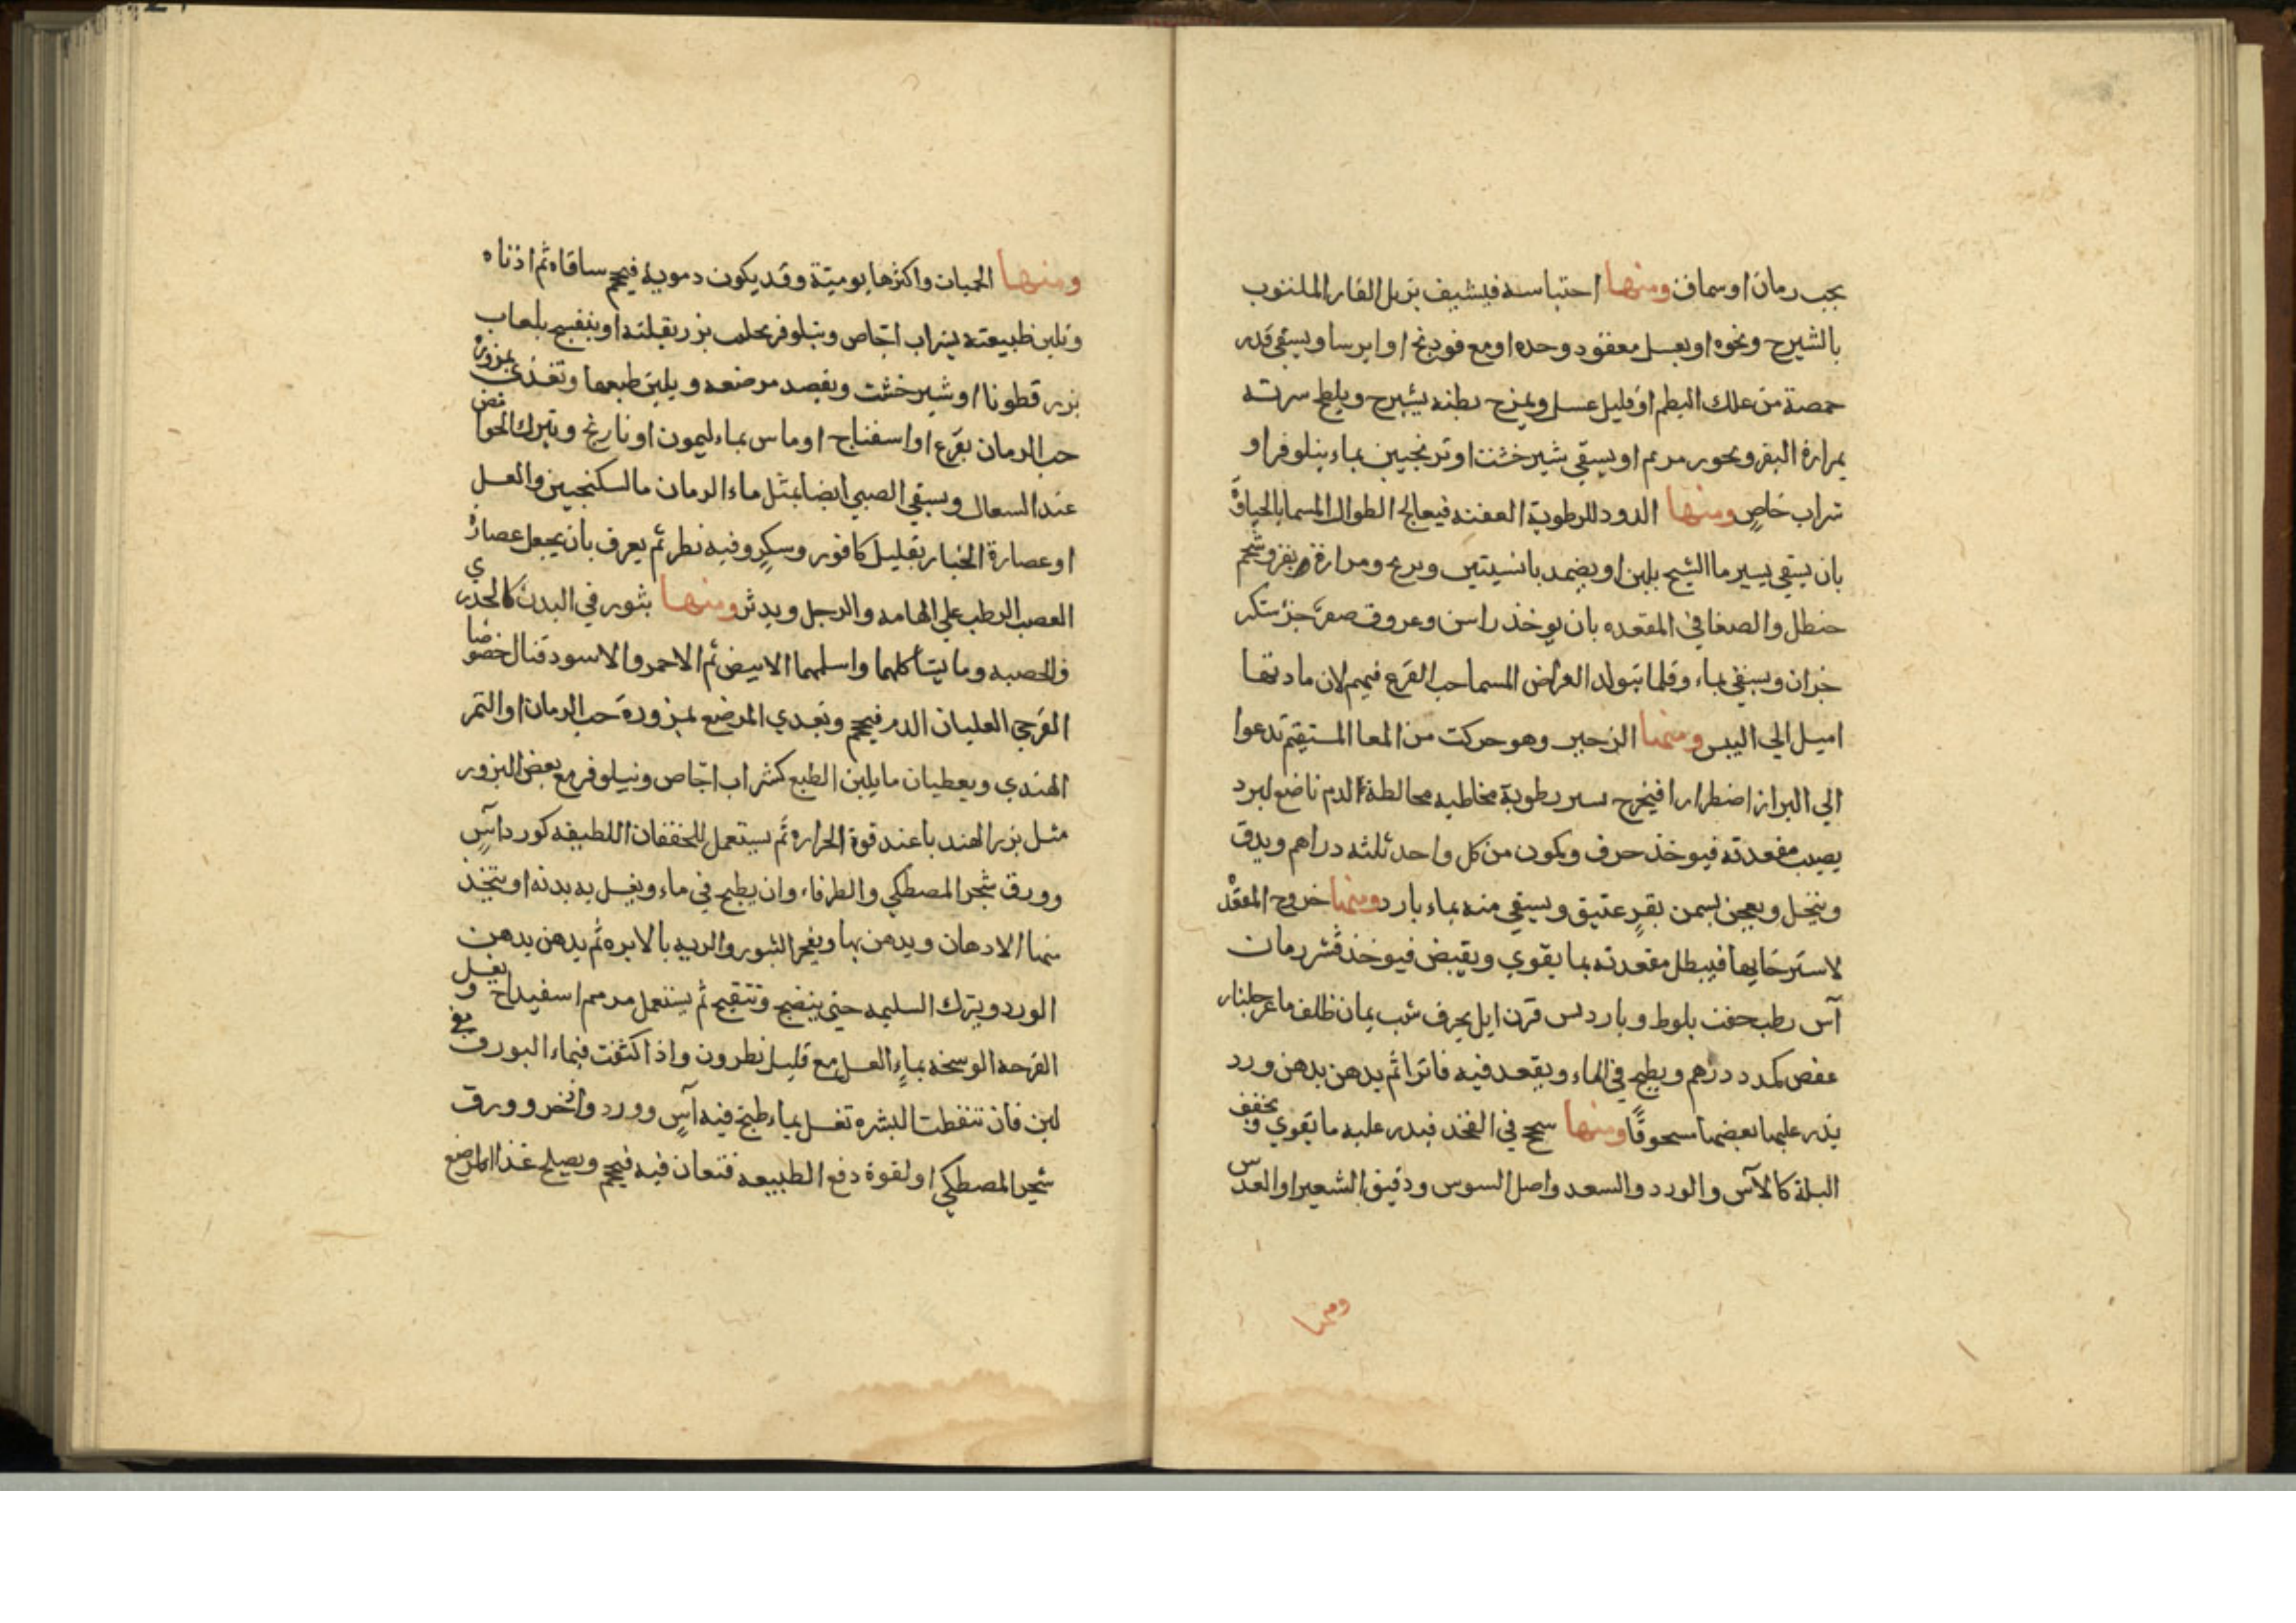 بحب رمان او سماق ومنها احتباسه فيشيف بزبل الفار الملتوب
بالشيرج ونحوه او بعسل معقود وحده او مع فودنج او ايرسا ويسقي قدر
حمصة من علك البطم او قليل عسل ويمزج بطنه بشيرج ويلطخ سرته
بمرارة البقر وبخور مريم او يسقي شيرخشت او ترنجبين بماء نيلوفر او
شراب خاص ومنها الدود للرطوبة العفنه فيعالج الطوال المسما بالحياة
بان يسقي يسير ما الشيح بلبن او يضمد بافسنتين وبرنج ومرارة بقر وشحم
حنطل والصغا في المقعده بان يوخذ راسن وعروق صفر جز سكر
جزان ويسقي بماء وقلما يتولد العراض المسما حب القرع فيهم لان مادتها
اميل الي اليبس ومنها الزحير وهو حركت من المعا المستقيم تدعوا
الي البراز اضطرارا فيخرج يسير رطوبة مخاطيه مخالطة الدم ناضع لبرد
يصيب مقعدته فيوخذ حرف وكمون من كل واحد ثلثه دراهم ويدق
وينخل ويعجن بسمن بقر عتيق ويسقي منه بماء بارد ومنها خروج المقعدة
لاسترخايها فيبطل مقعدته بما يقوي ويقبض فيوخذ قشر رمان
آس رطب جفت بلوط وبارد يس قرن ايل يحرف شب يمان ظلف ماعز جلنار
عفص كمدد درهم ويطبخ في الماء ويقعد فيه فاترا ثم يدهن بدهن ورد
يذر عليها بعضها سحوقا ومنها سحج في الفخذ فيذر عليه ما يقوي ويجفف
البلة كالآس والورد والسعد واصل السوس ودقيق الشعير او العدس
ومنها
ومنها الحميات واكثرها يوميتة وقد يكون دموية فيحجم ساقاه ثم اذناه
وتلين طبيعته بشراب اجاص ونيلوفر بحلب بزر بقلته او بنفسج بلعاب
بزر قطونا او شيرخشت ويفصد مرضعه ويلين طبعها وتغذي بمزورة
حب الرمان بقرع او اسفناج او ماس بماء ليمون او نارنج وتترك الحوامض
عند السعال ويسقي الصبي ايضا بمثل ماء الرمان مالسكنجبين والعسل
او عصارة الخيار بقليل كافور وسكر وفيه نظر ثم يعرف بان يجعل عصارة
العصب الرطب علي الهامه والرجل ويدثر ومنها بثور في البدن كالجدري
والحصبه وما يتأكلهما واسلمها الابيض ثم الاحمر والاسود قتال خصوصا
القرجي العليان الدم فيحجم وتغدي المرضع بمزورة حب الرمان او التمر
الهندي ويعطيان ما يلين الطبع كشراب اجاص ونيلوفر مع بعض البزور
مثل بزر الهندبا عند قوة الحراره ثم يستعمل للخفقان اللطيفه كورد آس
وورق شجر المصطكي والطرفاء وان يطبخ في ماء ويغسل به بدنه او يتخذ
منها الادهان ويدهن بها ويفجر البثور والرديه بالابره ثم يدهن بدهن
الورد ويترك السليمه حتي ينضج وتتقيح ثم يستعمل مرهم اسفيداج ويغسل
القرحه الوسخه بماء العسل مع قليل نطرون واذا كثفت فبماء البورق مع
لبن فان تنفطت البشره تغسل بماء طبخ فيه آس وورد واذخر وورق
شجر المصطكي او لقوة دفع الطبيعه فتعان فيه فيحجم ويصلح غذا المرضع